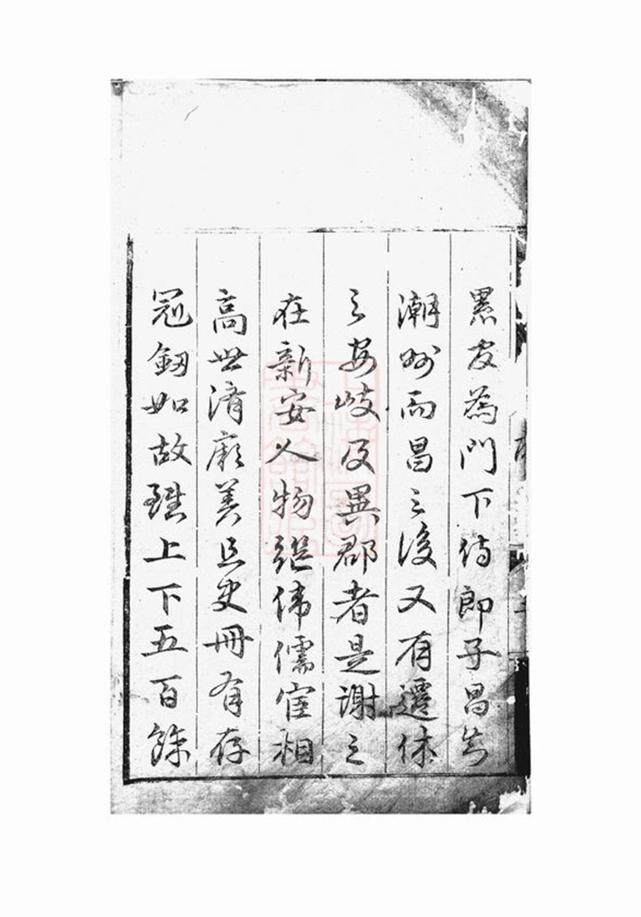 累官為門下侍郎子昌知
潮州而昌之後又有遷休
之安岐及異郡者是謝之
在新安人物繼偉儒宦相
高世濟厥美且史冊有存
冠劒如故雖上下五百餘